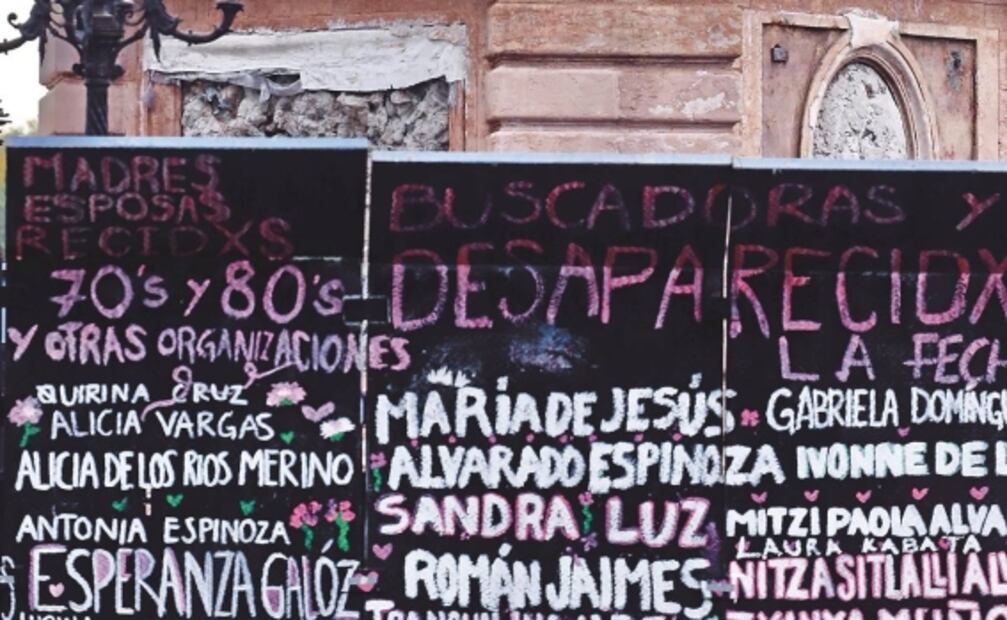 MADRES
ESPOSAS
RECIDXS
70's y 80's
Y OTRAS ORGANIZACIONES
QUIRINA CRUZ
ALICIA VARGAS
ALICIA DE LOS RIOS MERINO
ANTONIA ESPINOZA
ESPERANZA GALÓZ
BUSCADORAS Y
DESAPARECIDX
LA FECH
MARÍA DE JESÚS
ALVARADO ESPINOZA
SANDRA LUZ
ROMÁN JAIMES
GABRIELA DOMÍNG
IVONNE DE L
MITZI PAOLA ALVA
LAURA KABATA
NITZA SITLALLI AL